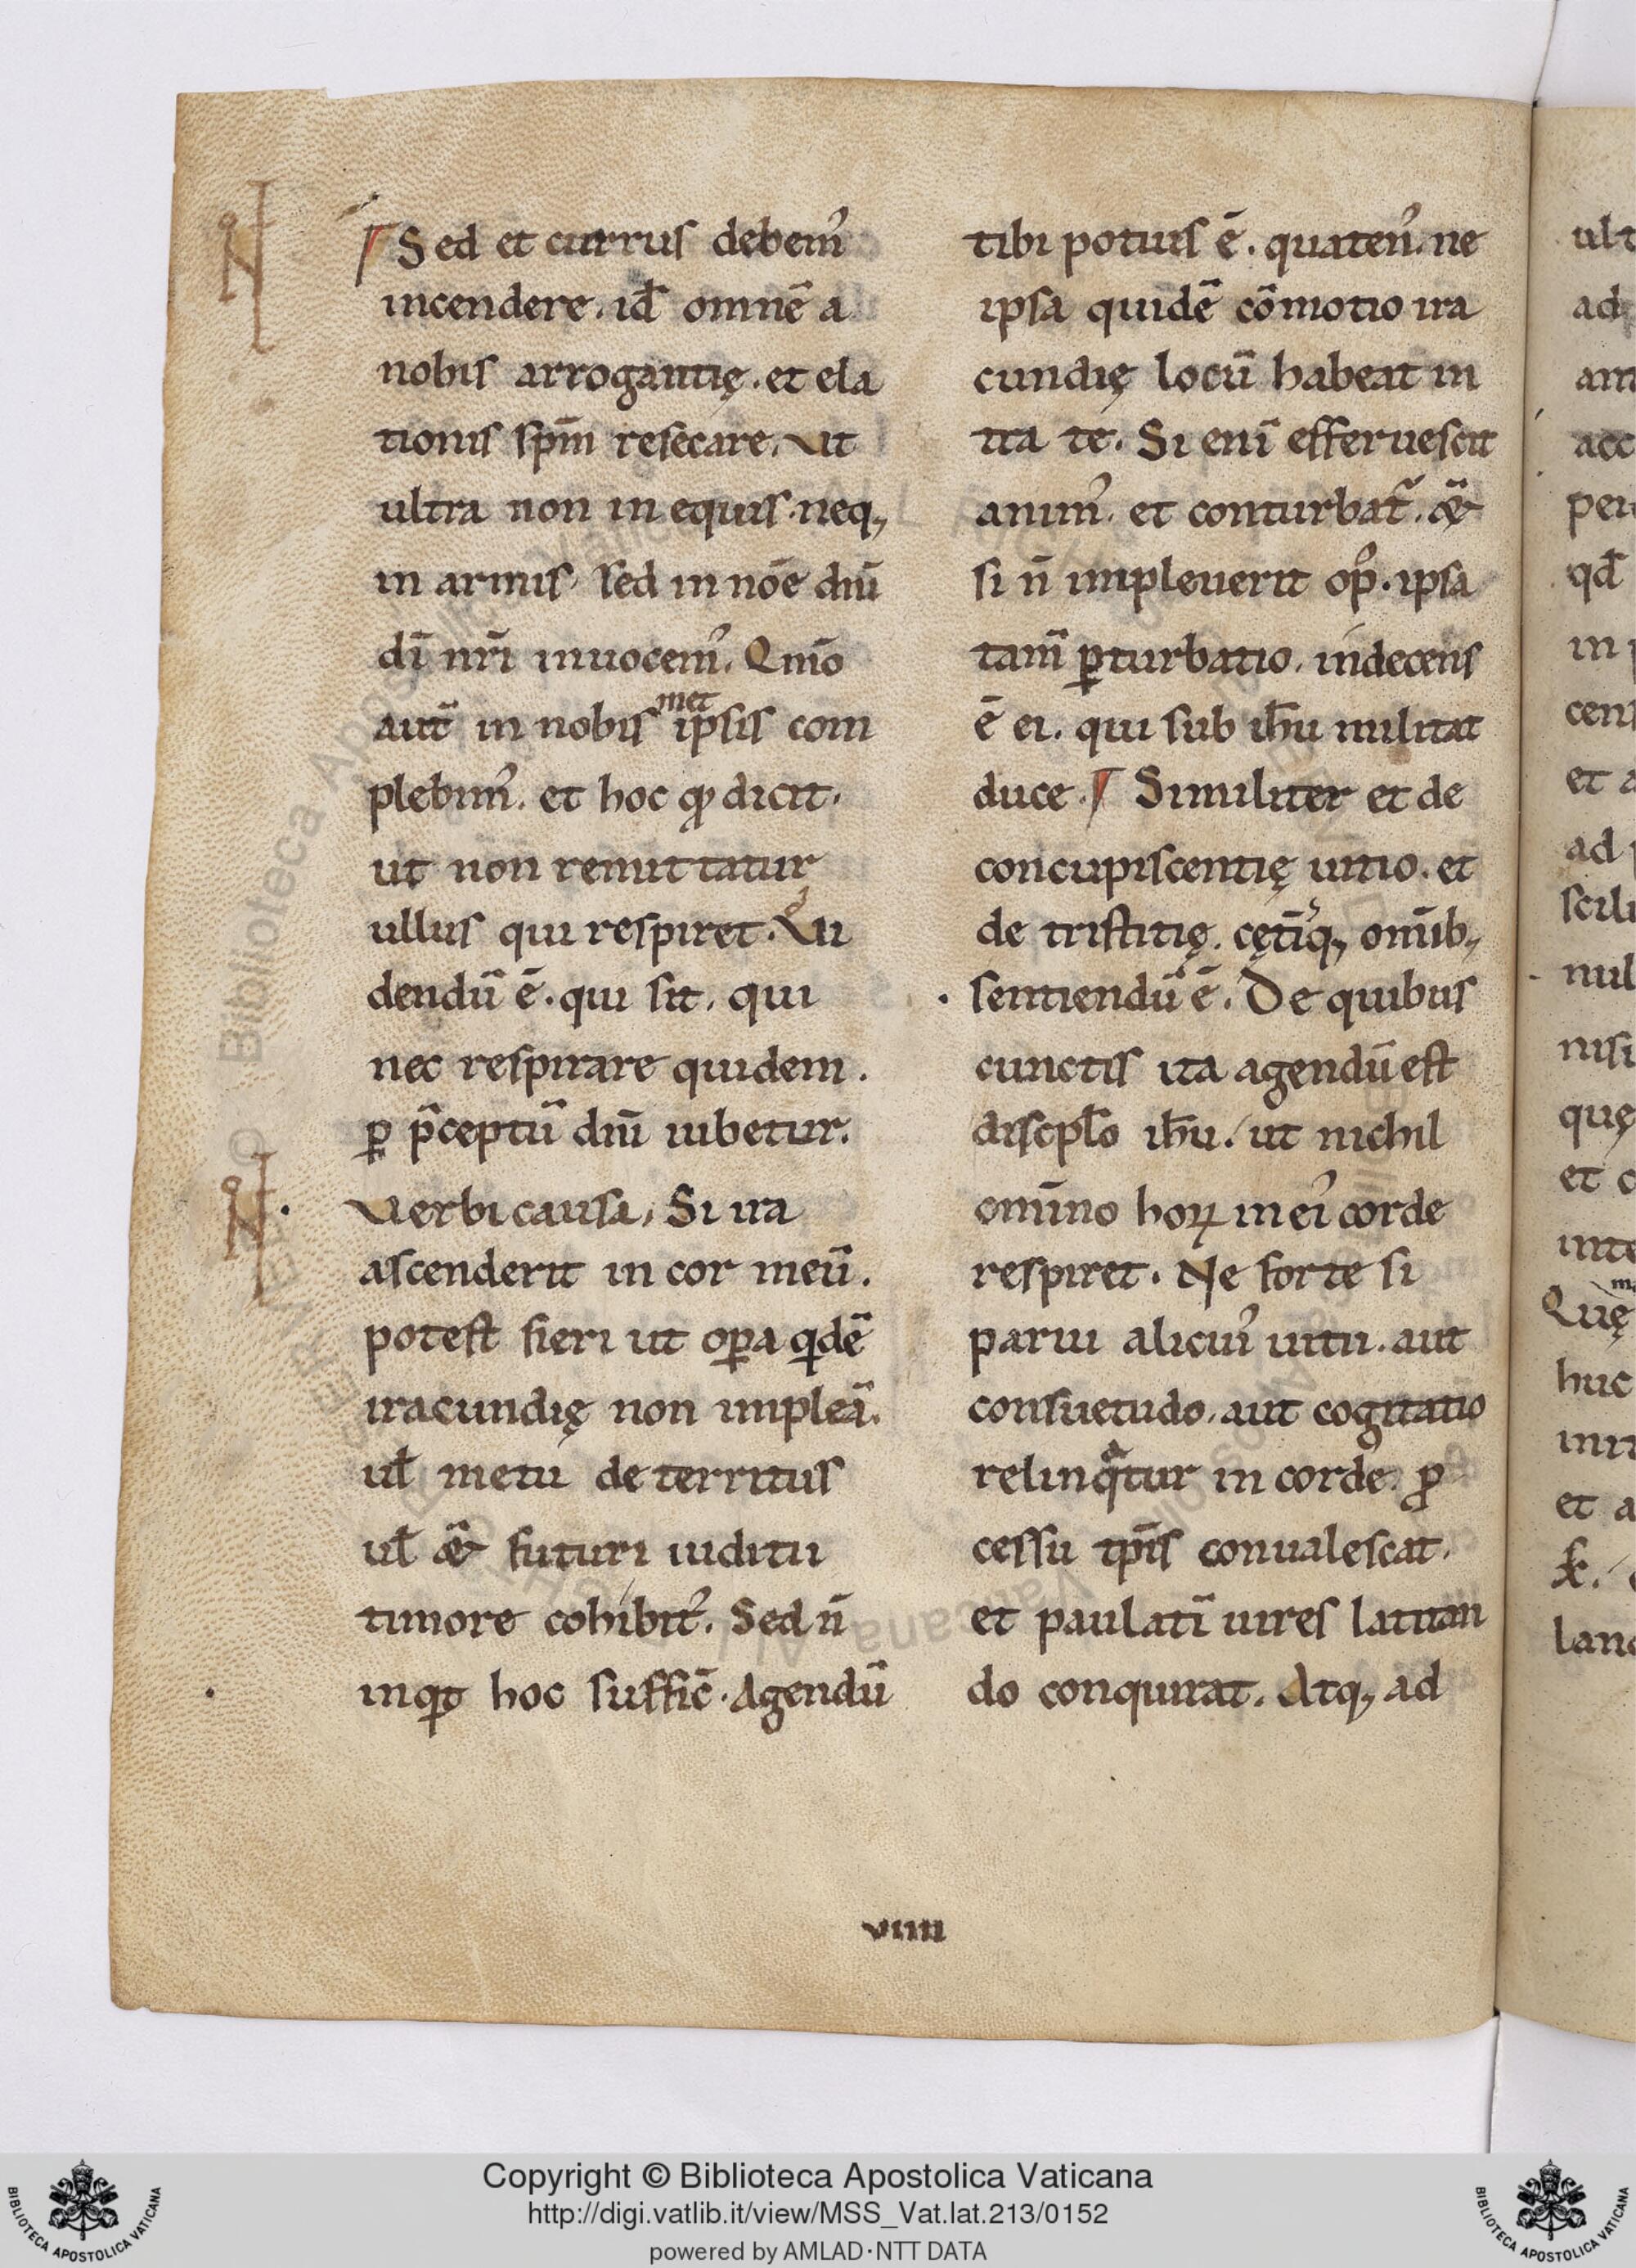 N
¶ Sed et currus debem᾽
incendere. id̄ omnē a
nobis arrogantię. et ela
tionis sp̄m resecare. Ut
ultra non in equis. neq;
in armis. sed in nōe dn̄i
dī nr̄i inuocem᾽. Qm̄o
aut̄ in nobis met ipsis com
plebim᾽. et hoc qđ dicit.
ut non remittatur
ullus qui respiret. Vi
dendū ē. qui sit, qui
nec respirare quidem.
ꝑ p̄ceptū dn̄i iubetur.
N
Verbi causa, Si ira
ascenderit in cor meū.
potest fieri ut oꝑa qdē
iracundię non impleā.
ul̄ metu deterritus
ul̄ & futuri iuditii
timore cohibit᾽. Sed n̄
inqt hoc suffic̄. Agendū
tibi potuis ē. quaten᾽. ne
ipsa quidē cōmotio ira
cundię locū habeat in
ita te. Si enī efferuescit
anim᾽. et conturbat᾽. &
si n̄ impleuerit op᾽. ipsa
tam̄ ꝑturbatio. indecens
ē ei. qui sub ih̄u militat
duce. ¶ Similiter et de
concupiscentię uitio. et
de tristitię. cętīq; omīb;
sentiendū ē. De quibus
cunctis ita agendū est
discipl̄o ih̄u. ut nichil
omīno hoꝝ in ei᾽ corde
respiret. Ne forte si
parui alicui᾽ uitii. aut
consuetudo. aut cogitatio
relinqͣtur in corde. ꝓ
cessu tp̄is conualescat.
et paulatī uires latitan
do conquirat. Atq; ad
viiii
Copyright © Biblioteca Apostolica Vaticana
http://digi.vatlib.it/view/MSS_Vat.lat.213/0152
powered by AMLAD·NTT DATA
BIBLIOTECA APOSTOLICA VATICANA
BIBLIOTECA APOSTOLICA VATICANA